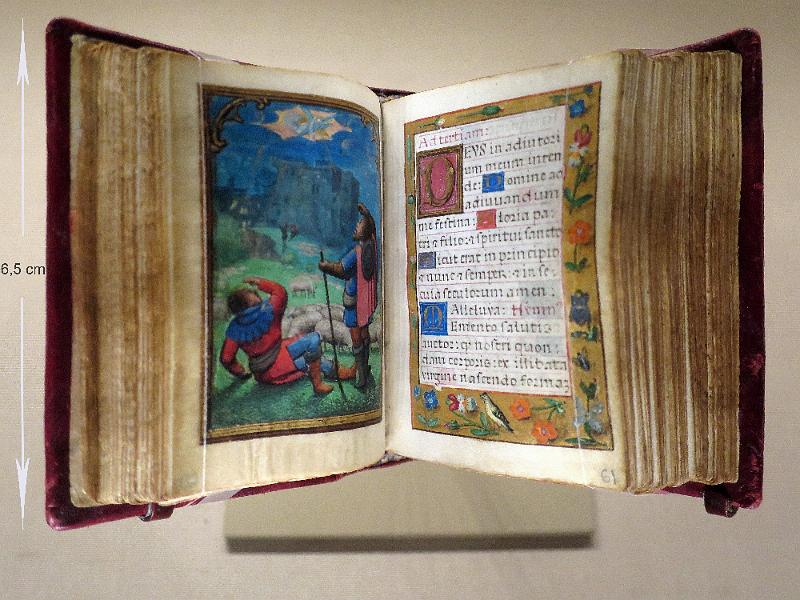 6,5 cm
Ad tertiam:
DEVS in adiutori
um meum inten
de: Domine ad
adiuuandum
me festina: Gloria pa
tri & filio: & spiritui sancto
Sicut erat in principio
& nunc & semper: & in se
cula seculorum amen:
Alleluya: Hymn
Memento salutis
auctor: q nostri quon
dam corporis: ex illibata
virgine nascendo formaz
61